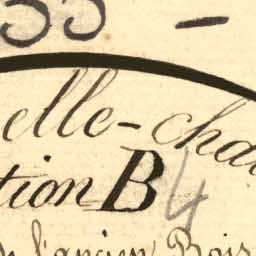 55 -
elle-cha
tion B 4
de l'ancien Bois